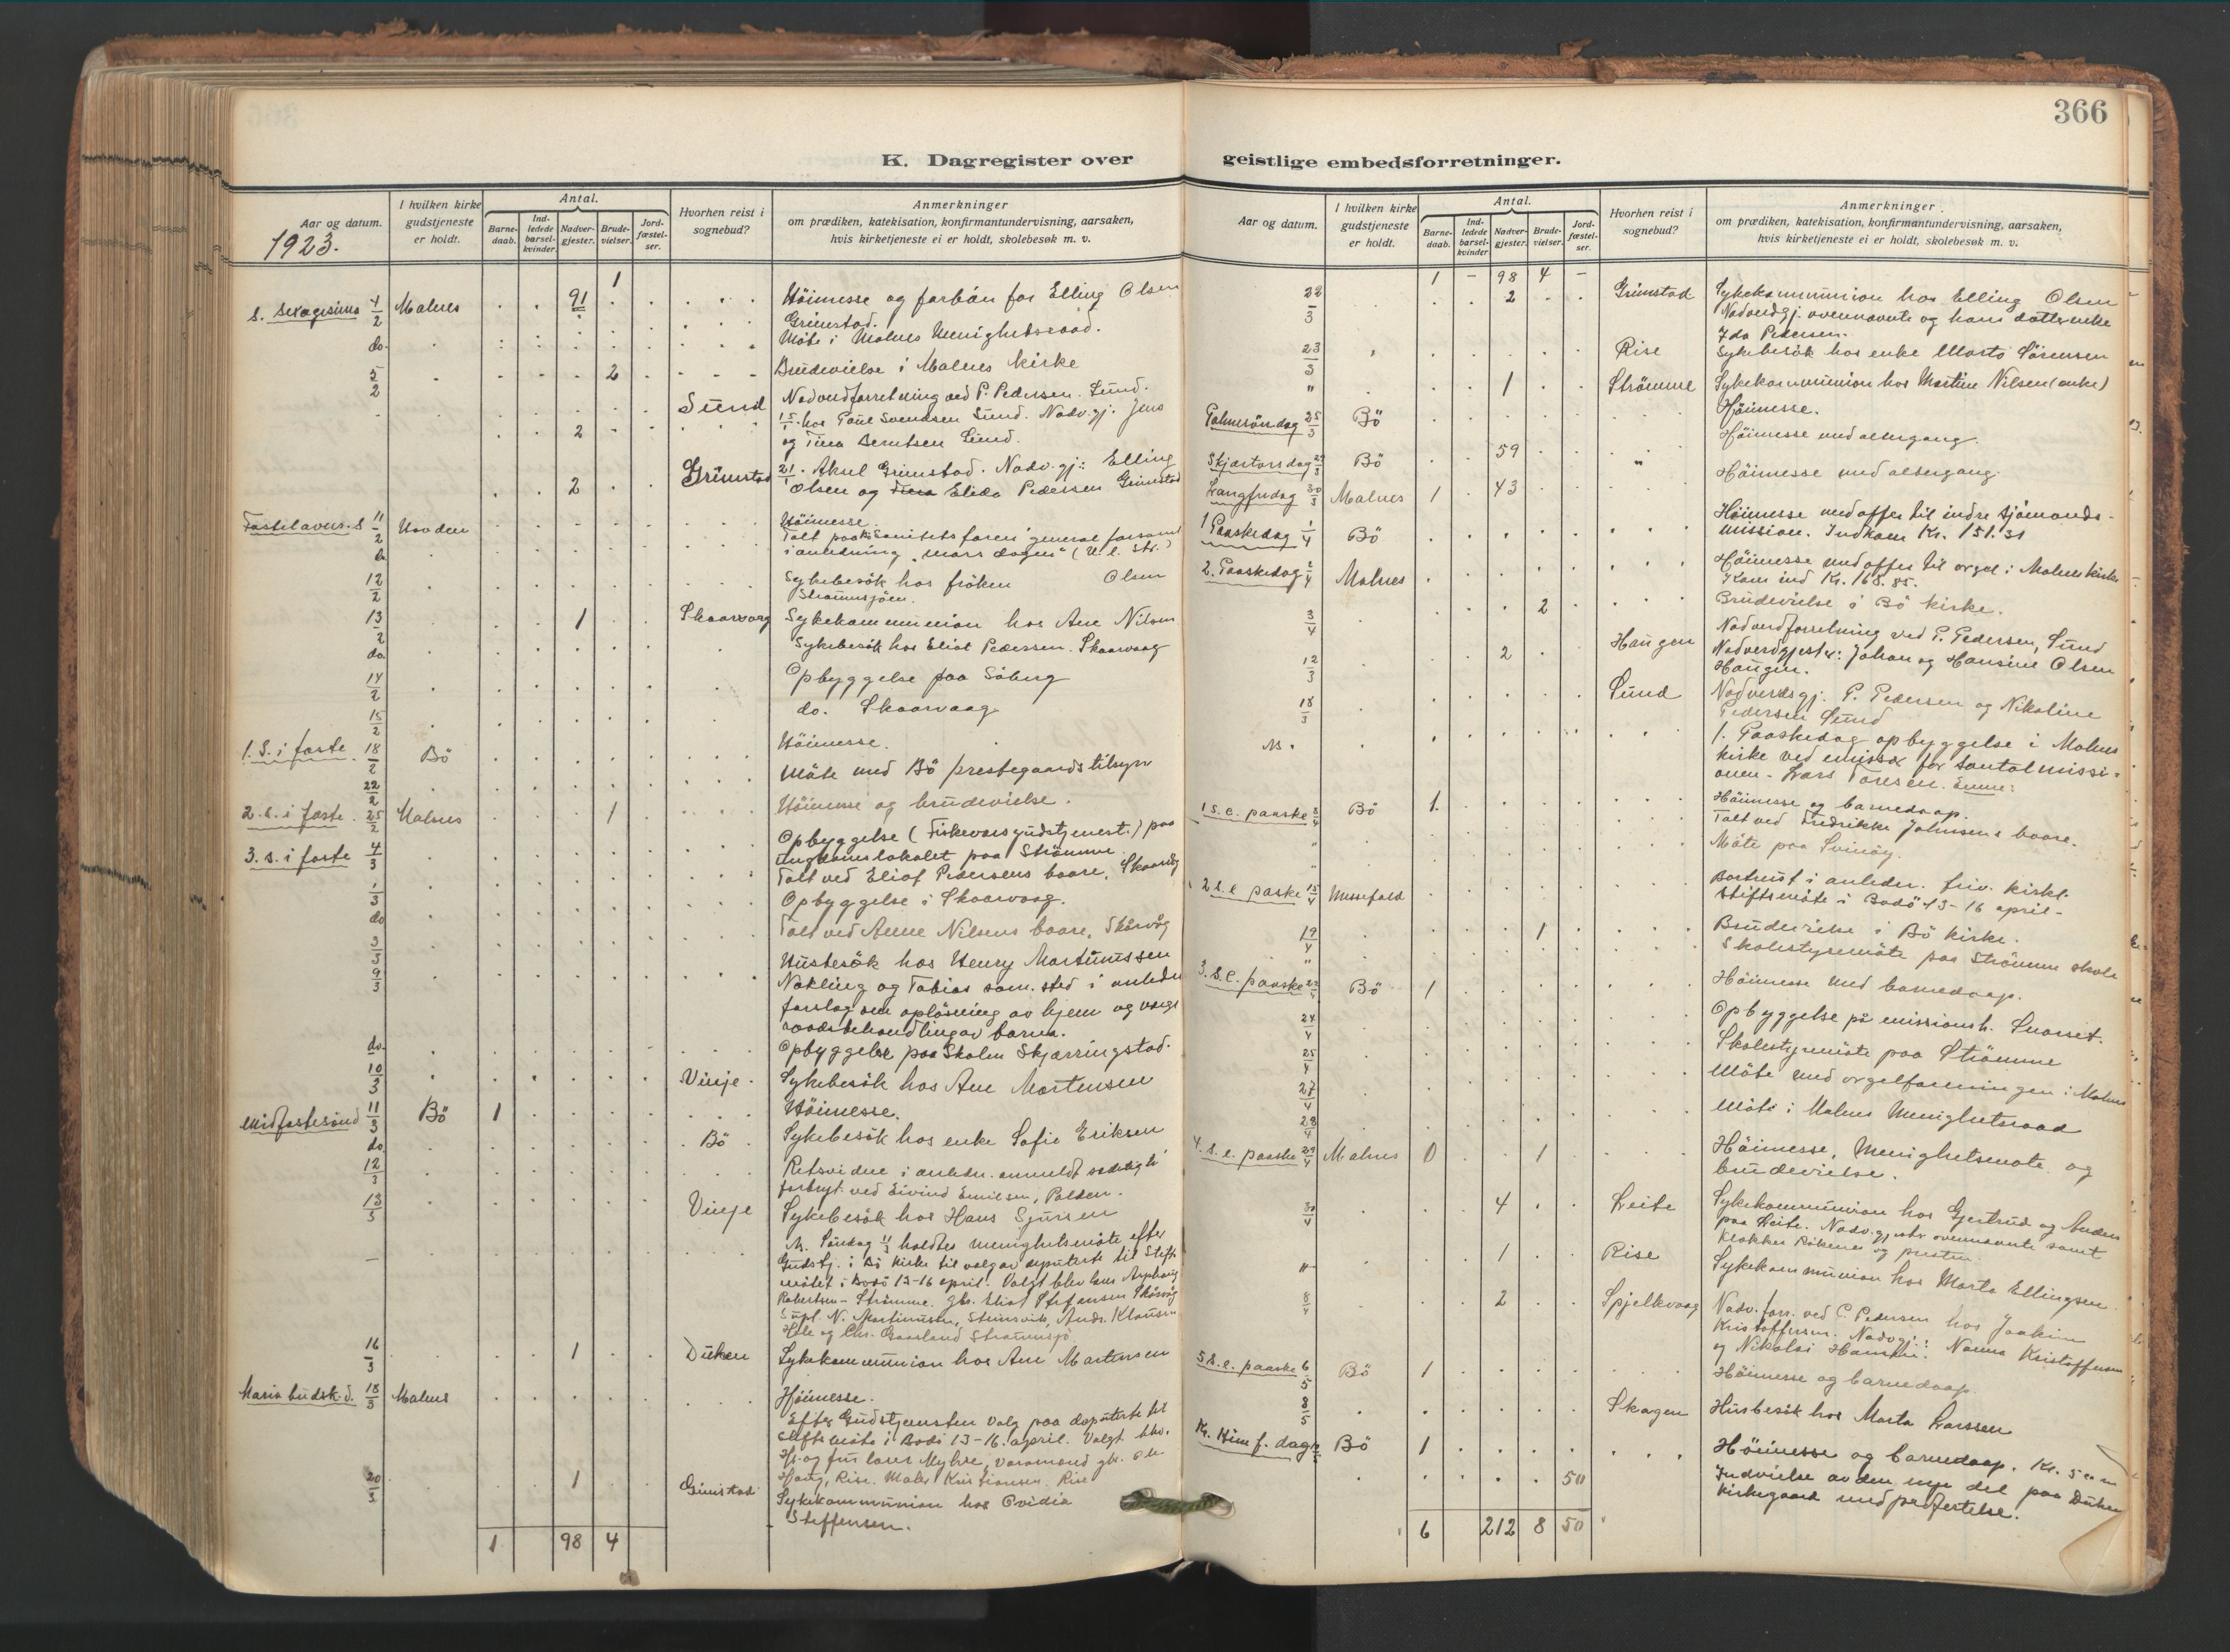 366
K. Dagregister over
geistlige embedsforretninger.
Aar og datum.
1923.
I hvilken kirke
gudstjeneste
er holdt.
Antal.
Barne-
daab.
Ind-
ledede
barsel-
kvinder.
Nadver-
gjester.
Brude-
vielser.
Jord-
fæstel-
ser.
Hvorhen reist i
sognebud?
Anmerkninger
om prædiken, katekisation, konfirmantundervisning, aarsaken,
hvis kirketjeneste ei er holdt, skolebesøk m. v.
S. Sexagesima 4/2 Malnes 91 1 Höimesse og forbön for Elling Olsen
Grimstad.
do. Möte i Malnes Menighetsraad.
5/2 2 Brudevielse i Malnes kirke
Sund Nadverdforretning ved P. Pedersen. Sund.
15/1 hos Paul Svendsen Sund. Nadv.gj. Jens
2 og Tina Berntsen Sund.
Grimstad 21/1 Aksel Grimstad. Nadv.gj: Elling
2 Olsen og Elida Pedersen Grimstad
Fastelavns. S 11/2 Hovden Höimesse.
do. Talt paa Sanitetsforen general forsaml
i anledning
12/2 Sykebesök hos fröken Olsen
Straumsjöen.
13/2 1 Skaarvaag Sykekommunion hos Ane Nilsen
do. Sykebesök hos Eliot Pedersen. Skaarvaag
14/2 Opbyggelse paa Söberg
15/2 do. Skaarvaag
1. S. i faste 18/2 Bö Höimesse.
22/2 Möte med Bö prestegaards tilsyn
2. S. i faste 25/2 Malnes 1 Höimesse og brudevielse.
3. S. i faste 4/3 Opbyggelse (Fiskeværsgudstjenest.) paa
ungdomslokalet paa Strömme.
1/3 Talt ved Eliot Pedersens baare, Skaarvåg
do Opbyggelse i Skaarvaag.
3/3 Talt ved Anne Nilsens baare, Skårvåg
9/3 Husbesök hos Henry Martinussen
Nökling og Tobias sam. sted i anledn
forslag om oplösning av hjem og verge
raadsbehandling av barna.
do. Opbyggelse paa Skolen Skjærringstad.
10/3 Vinje Sykebesök hos Ane Mortensen
Midfastesönd 11/3 Bö 1 Höimesse.
do. Bö Sykebesök hos enke Sofie Eriksen
12/3 Retsvidne i anledn. anmeldt sedeligh
forbryt. ved Eivind Emilsen,
13/3 Vinje Sykebesök hos Hans Sjursen
N. Söndag 11/3 holdtes menighetsmöte efter
Gudstj. i Bö kirke til valg av deputerte til Stifts
mötet i Bodö 13-16 april. Valgt blev
Robertsen - Strömme. gbr. Eliot Steffensen Skårvåg
Supl. N. Martinussen, Steinsvik, Andr. Klausen
Hole og Chr. Gaarland Straumsjö.
16/3 1 Duken Sykekommunion hos Ane Martinsen
Maria budsk. d. 18/3 Malnes Höimesse.
Efter Gudstjenesten valg paa deputerte til
Stiftsmöte i Bodö 13-16 april. Valgt blev.
Hr. og fru lærer Myhre, varamænd gbr. Ole
Haug, Rise. Maler Kristiansen. Rise
20/3 1 Grimstad Sykekommunion hos Ovidia
Steffensen.
1 98 4
Aar og datum.
I hvilken kirke
gudstjeneste
er holdt.
Antal.
Barne-
daab.
Ind-
ledede
barsel-
kvinder.
Nadver-
gjester.
Brude-
vielser.
Jord-
fæstel-
ser.
Hvorhen reist i
sognebud?
Anmerkninger
om prædiken, katekisation, konfirmantundervisning, aarsaken,
hvis kirketjeneste ei er holdt, skolebesøk m. v.
1 - 98 4 -
22/3 2 Grimstad Sykekommunion hos Elling Olsen
Nadverdgj. ovennævnte og hans datter enke
Ida Pedersen.
23/3 Rise Sykebesök hos enke Marta Sörensen
" 1 Strömme Sykekommunion hos Martine Nilsen (enke)
Palmesöndag 25/3 Bö Höimesse.
Skjærtorsdag 29/3 Bö 59 Höimesse med altergang.
Langfredag 30/3 Malnes 1 43 Höimesse med altergang.
1 Paaskedag 1/4 Bö Höimesse med offer til indre sjömands-
mission. Indkom Kr. 151.31
2. Paaskedag 2/4 Malnes Höimesse med offer til orgel i Malnes kirke
Kom ind Kr. 168.85.
3/4 2 Brudevielse i Bö kirke.
12/3 2 Haugen Nadverdforretning ved P. Pedersen, Sund
Nadverdgjester: Johan og Hansine Olsen
Haugen.
18/3 Sund Nadverdsgj. P. Pedersen og Nikoline
Pedersen Sund
N. 1. Paaskedag opbyggelse i Malnes
kirke ved emissær for Santalmissi-
onen - Lars Toresen.
1 S. e. paaske 8/4 Bö 1. Höimesse og barnedaap.
" Talt ved Fredrikke Johnsens baare.
" Möte paa Svinöy.
2 S. e. paske 15/4 Messefald Bortreist i anledn. friv. kirkl.
stiftsmöte i Bodö 13-16 april-
19/4 1 Brudevielse i Bö kirke.
" Skolestyremöte paa Strömme skole
3. S. e. paaske 22/4 Bö 1 Höimesse med barnedaap.
24/4 Opbyggelse på missionsh. Guvaaset.
25/4 Skolestyremöte paa Strömme
27/4 Möte med orgelforeningen i Malnes
28/4 Möte i Malnes Menighetsraad
4. S. e. paaske 29/4 Malnes 0 1 Höimesse, Menighetsmöte og
brudevielse.
30/4 4 Leite Sykekommunion hos Gjertrud og Anders
paa Leite. Nadv.gjester ovennævnte samt
Klokker Rökenes og presten.
" 1 Rise Sykekommunion hos Marta Ellingsen
8/4 2 Spjelkvaag Nadv. forr. ved P. Pedersen hos Joakim
Kristoffersen. Nadvgj: Nanna Kristoffersen
og Nikolai Hansen.
5 S. e. paaske 6/5 Bö 1 Höimesse og barnedaap.
8/5 Skagen Husbesök hos Marta Larssen
Kr. Himf. dag Bö 1 Höimesse og barnedaap.
50 Indvielse av den nye del paa Duken
kirkegaard med jordfæstelse.
6 212 8 50